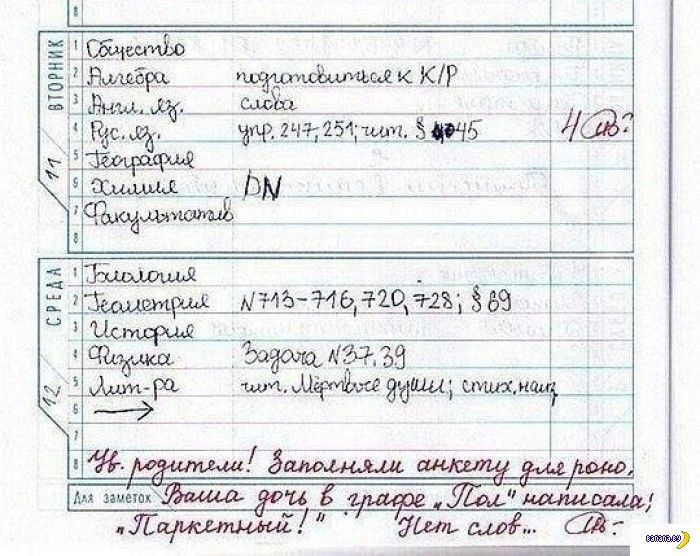 8
ВТОРНИК
11
1 Общество
2 Алгебра подготовиться к К/Р
3 Англ. яз. слова
4 Рус. яз. упр. 247, 251; чит. § 45 4
5 География
6 Химия
7 Факультатив
8
СРЕДА
12
1 Биология
2 Геометрия N713-716, 720, 728; § 69
3 История
4 Физика Задача N37, 39
5 Лит-ра чит. Мёртвые души; стих. наиз.
6 →
7
8 Ув. родители! Заполняли анкету для роно.
Для заметок Ваша дочь в графе „Пол" написала:
„Паркетный!" Нет слов...
banana.by